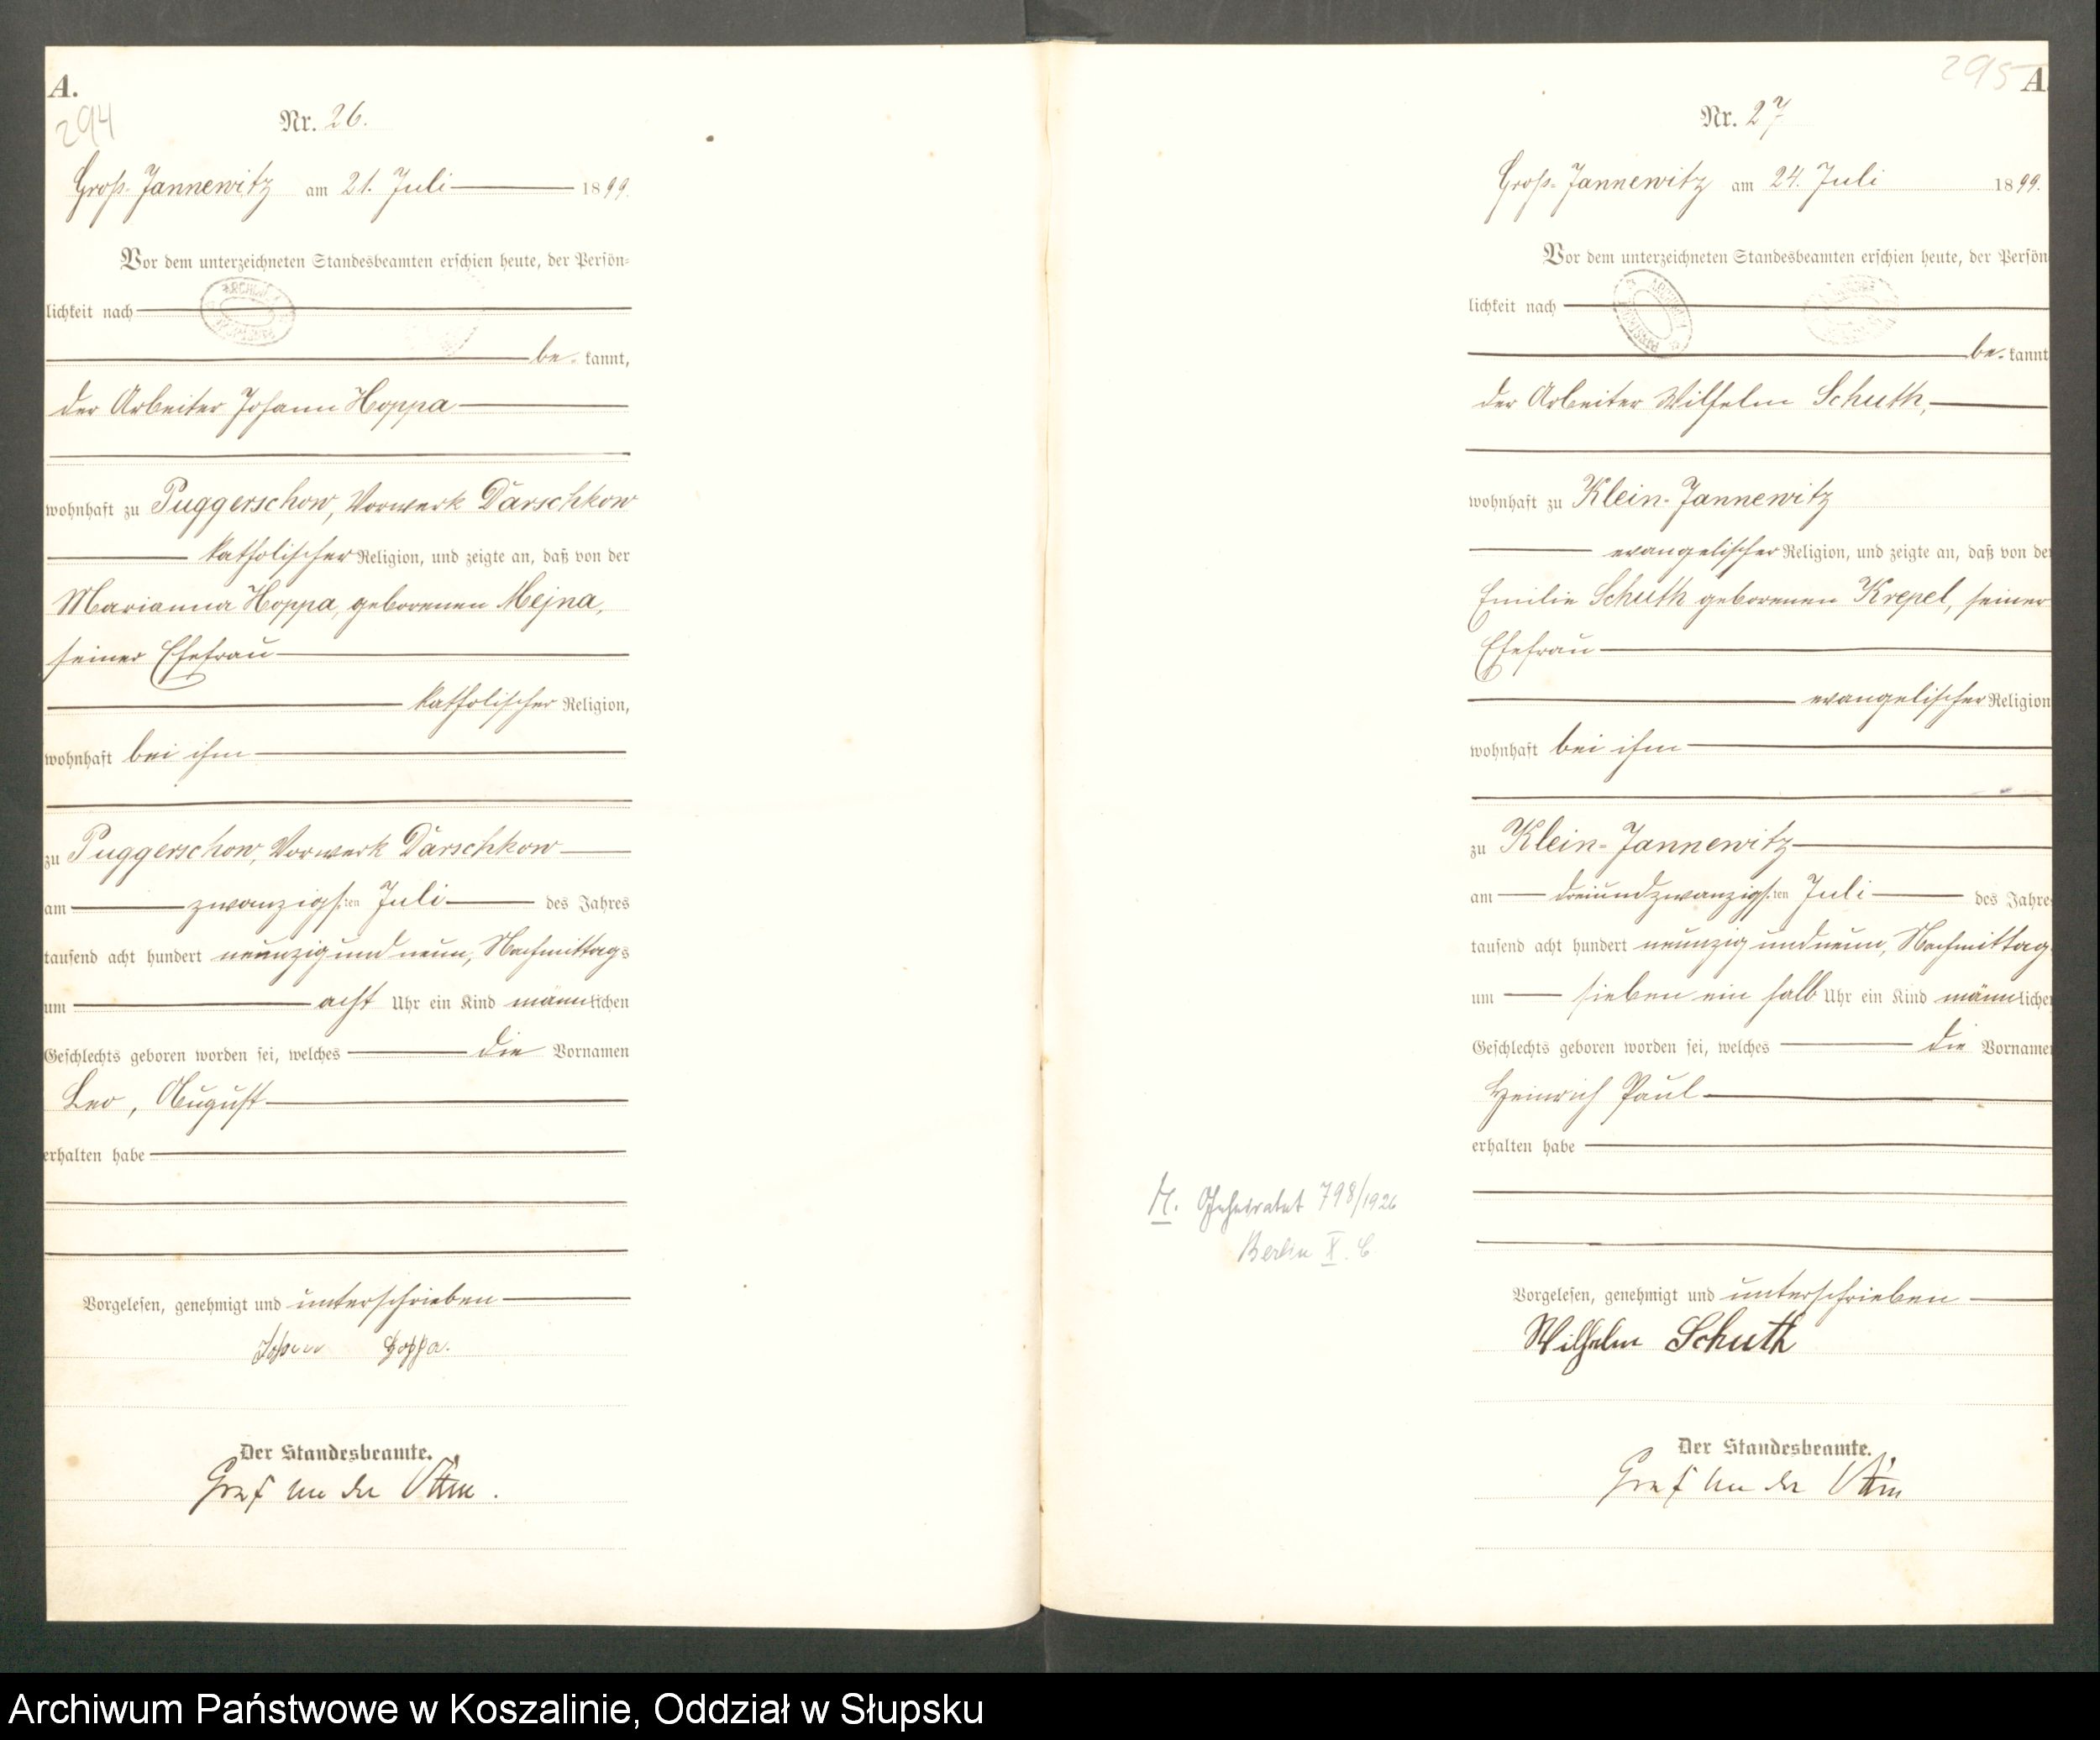 A.
294
Nr. 26.
Groß-Jannewitz am 21. Juli 1899.
Vor dem unterzeichneten Standesbeamten erschien heute, der Persön-
lichkeit nach
be- kannt,
der Arbeiter Johann Hoppa
wohnhaft zu Puggerschow, Vorwerk Darschkow
katholischer Religion, und zeigte an, daß von der
Marianna Hoppa, geborenen Mejna,
seiner Ehefrau
katholischer Religion,
wohnhaft bei ihm
zu Puggerschow, Vorwerk Darschkow
am zwanzigsten Juli des Jahres
tausend acht hundert neunzig und neun, Nachmittags
um acht Uhr ein Kind männlichen
Geschlechts geboren worden sei, welches die Vornamen
Leo, August
erhalten habe
Vorgelesen, genehmigt und unterschrieben
Johann Hoppa.
Der Standesbeamte.
Graf von der
295
A.
Nr. 27
Groß-Jannewitz am 24. Juli 1899.
Vor dem unterzeichneten Standesbeamten erschien heute, der Persön
lichkeit nach
be- kannt
der Arbeiter Wilhelm Schuth,
wohnhaft zu Klein-Jannewitz
evangelischer Religion, und zeigte an, daß von der
Emilie Schuth geborenen Krepel, seiner
Ehefrau
evangelischer Religion
wohnhaft bei ihm
zu Klein-Jannewitz
am dreiundzwanzigsten Juli des Jahre
tausend acht hundert neunzig und neun, Nachmittag
um sieben ein halb Uhr ein Kind männliche
Geschlechts geboren worden sei, welches die Vorname
Heinrich Paul
erhalten habe
Vorgelesen, genehmigt und unterschrieben
Wilhelm Schuth
Der Standesbeamte.
Graf von der
Geheiratet 798/1926
Berlin
Archiwum Państwowe w Koszalinie, Oddział w Słupsku